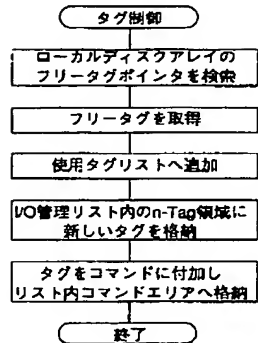 タグ制御
ローカルディスクアレイの
フリータグポインタを検索
フリータグを取得
使用タグリストへ追加
I/O管理リスト内のn-Tag領域に
新しいタグを格納
タグをコマンドに付加し
リスト内コマンドエリアへ格納
終了